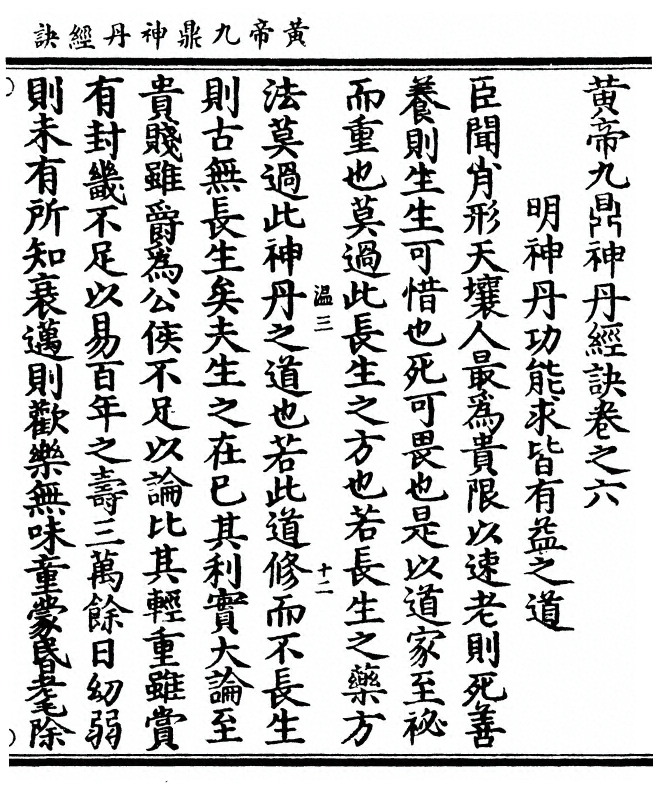 黃帝九鼎神丹經訣
黃帝九鼎神丹經訣卷之六
明神丹功能求皆有益之道
臣聞肖形天壤人最爲貴限以速老則死善
養則生生可惜也死可畏也是以道家至祕
而重也莫過此長生之方也若長生之藥方
溫三
十二
法莫過此神丹之道也若此道修而不長生
則古無長生矣夫生之在已其利實大論至
貴賤雖爵爲公侯不足以論比其輕重雖賞
有封畿不足以易百年之壽三萬餘日幼弱
則未有所知衰邁則歡樂無味童蒙昬耄除